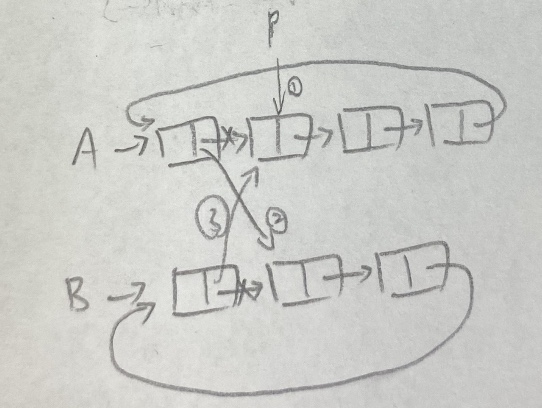 P
①
A
③ ②
B